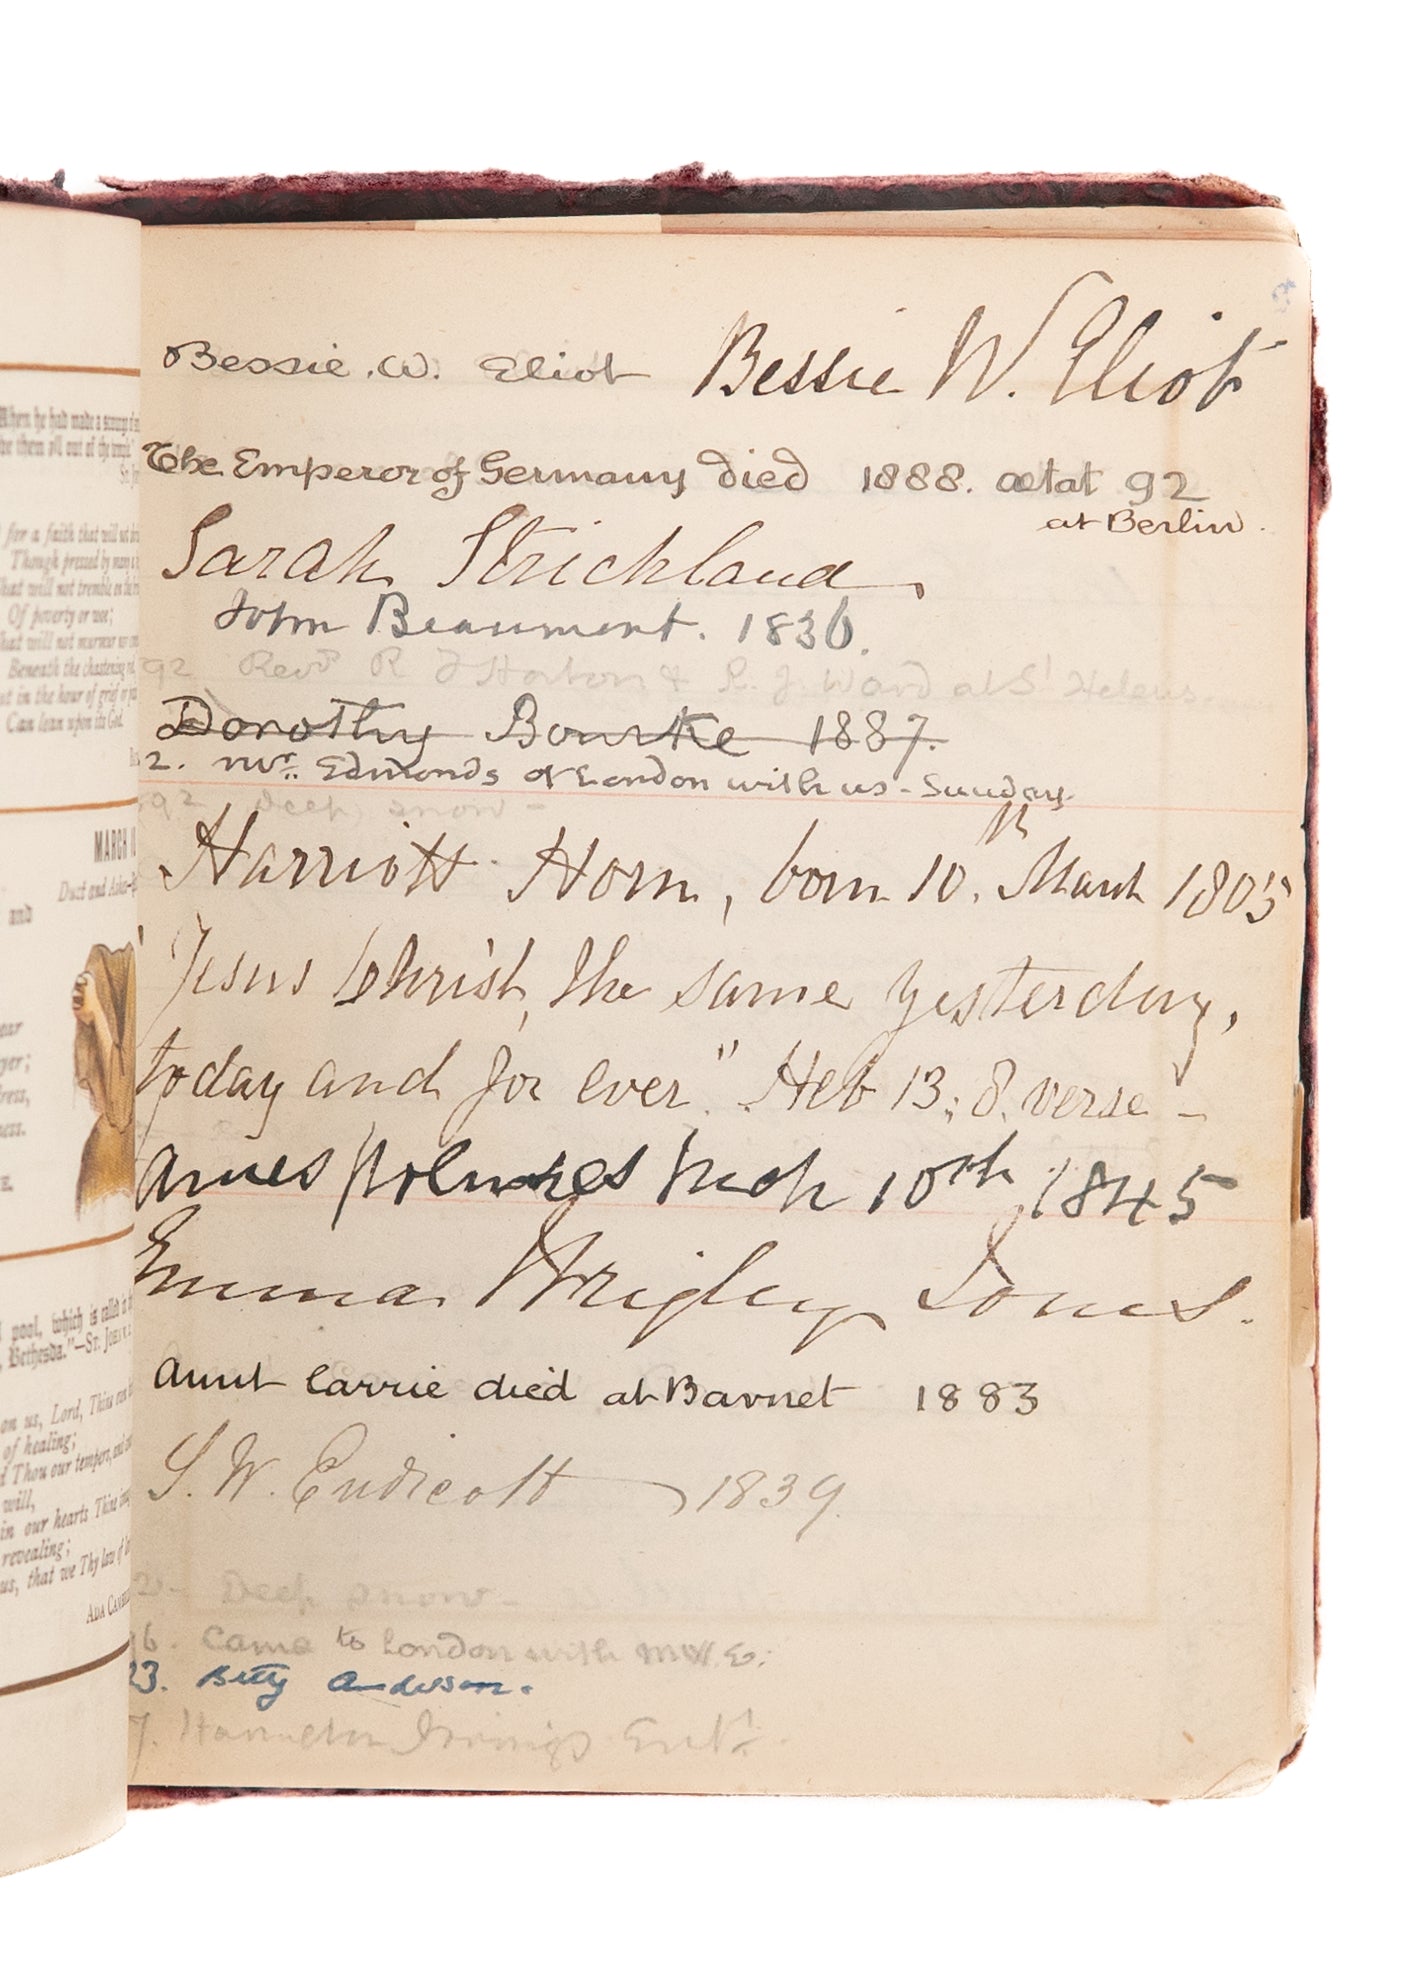 When he had made a scourge of
them all out of the temple
for a faith that will not
Though pressed by many a
that will not tremble on the
Of poverty or woe;
that will not murmur
Beneath the chastening rod,
in the hour of grief or
Can lean upon its God.
MARCH
Dust and Ashes
and
pool, which is called
Bethesda."—ST. JOHN
on us, Lord, Thine
of healing;
Thou our tempers, and
will,
in our hearts Thine
revealing;
us, that we Thy law of
ADA
Bessie. W. Eliot Bessie W. Eliot
The Emperor of Germany died 1888. ætat 92
at Berlin.
Sarah Strickland,
John Beaumont. 1836.
92 Revd R F Horton & Ward at St Helens.
Dorothy Bourke 1887.
2. Mr. Edmonds of London with us - Sunday.
92 Deep snow -
Harriott Horn, born 10th March 1805
"Jesus Christ, the same yesterday,
today and for ever." Heb 13; 8. verse -
Holmes Mch 10th 1845
Emma Wrigley Jones.
Aunt Carrie died at Barnet 1883
S. W. Endicott 1839.
2 - Deep snow -
6. Came to London with M.W.E.
23. Betty Anderson.
7.